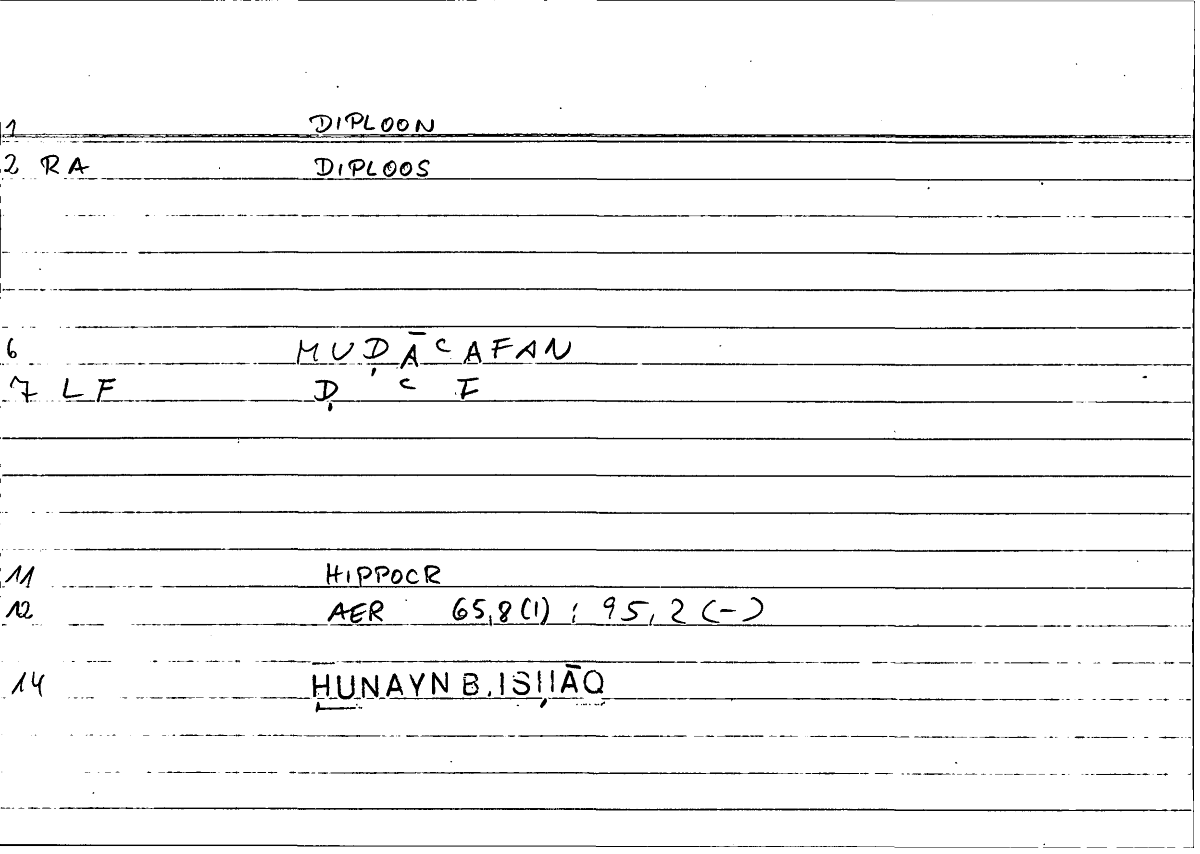 1 DIPLOON
2 RA DIPLOOS
6 MUḌĀʿAFAN
7 LF Ḍ ʿ F
11 HIPPOCR
12 AER 65,8(1) ; 95,2 (-)
14 ḤUNAYN B. ISḤĀQ